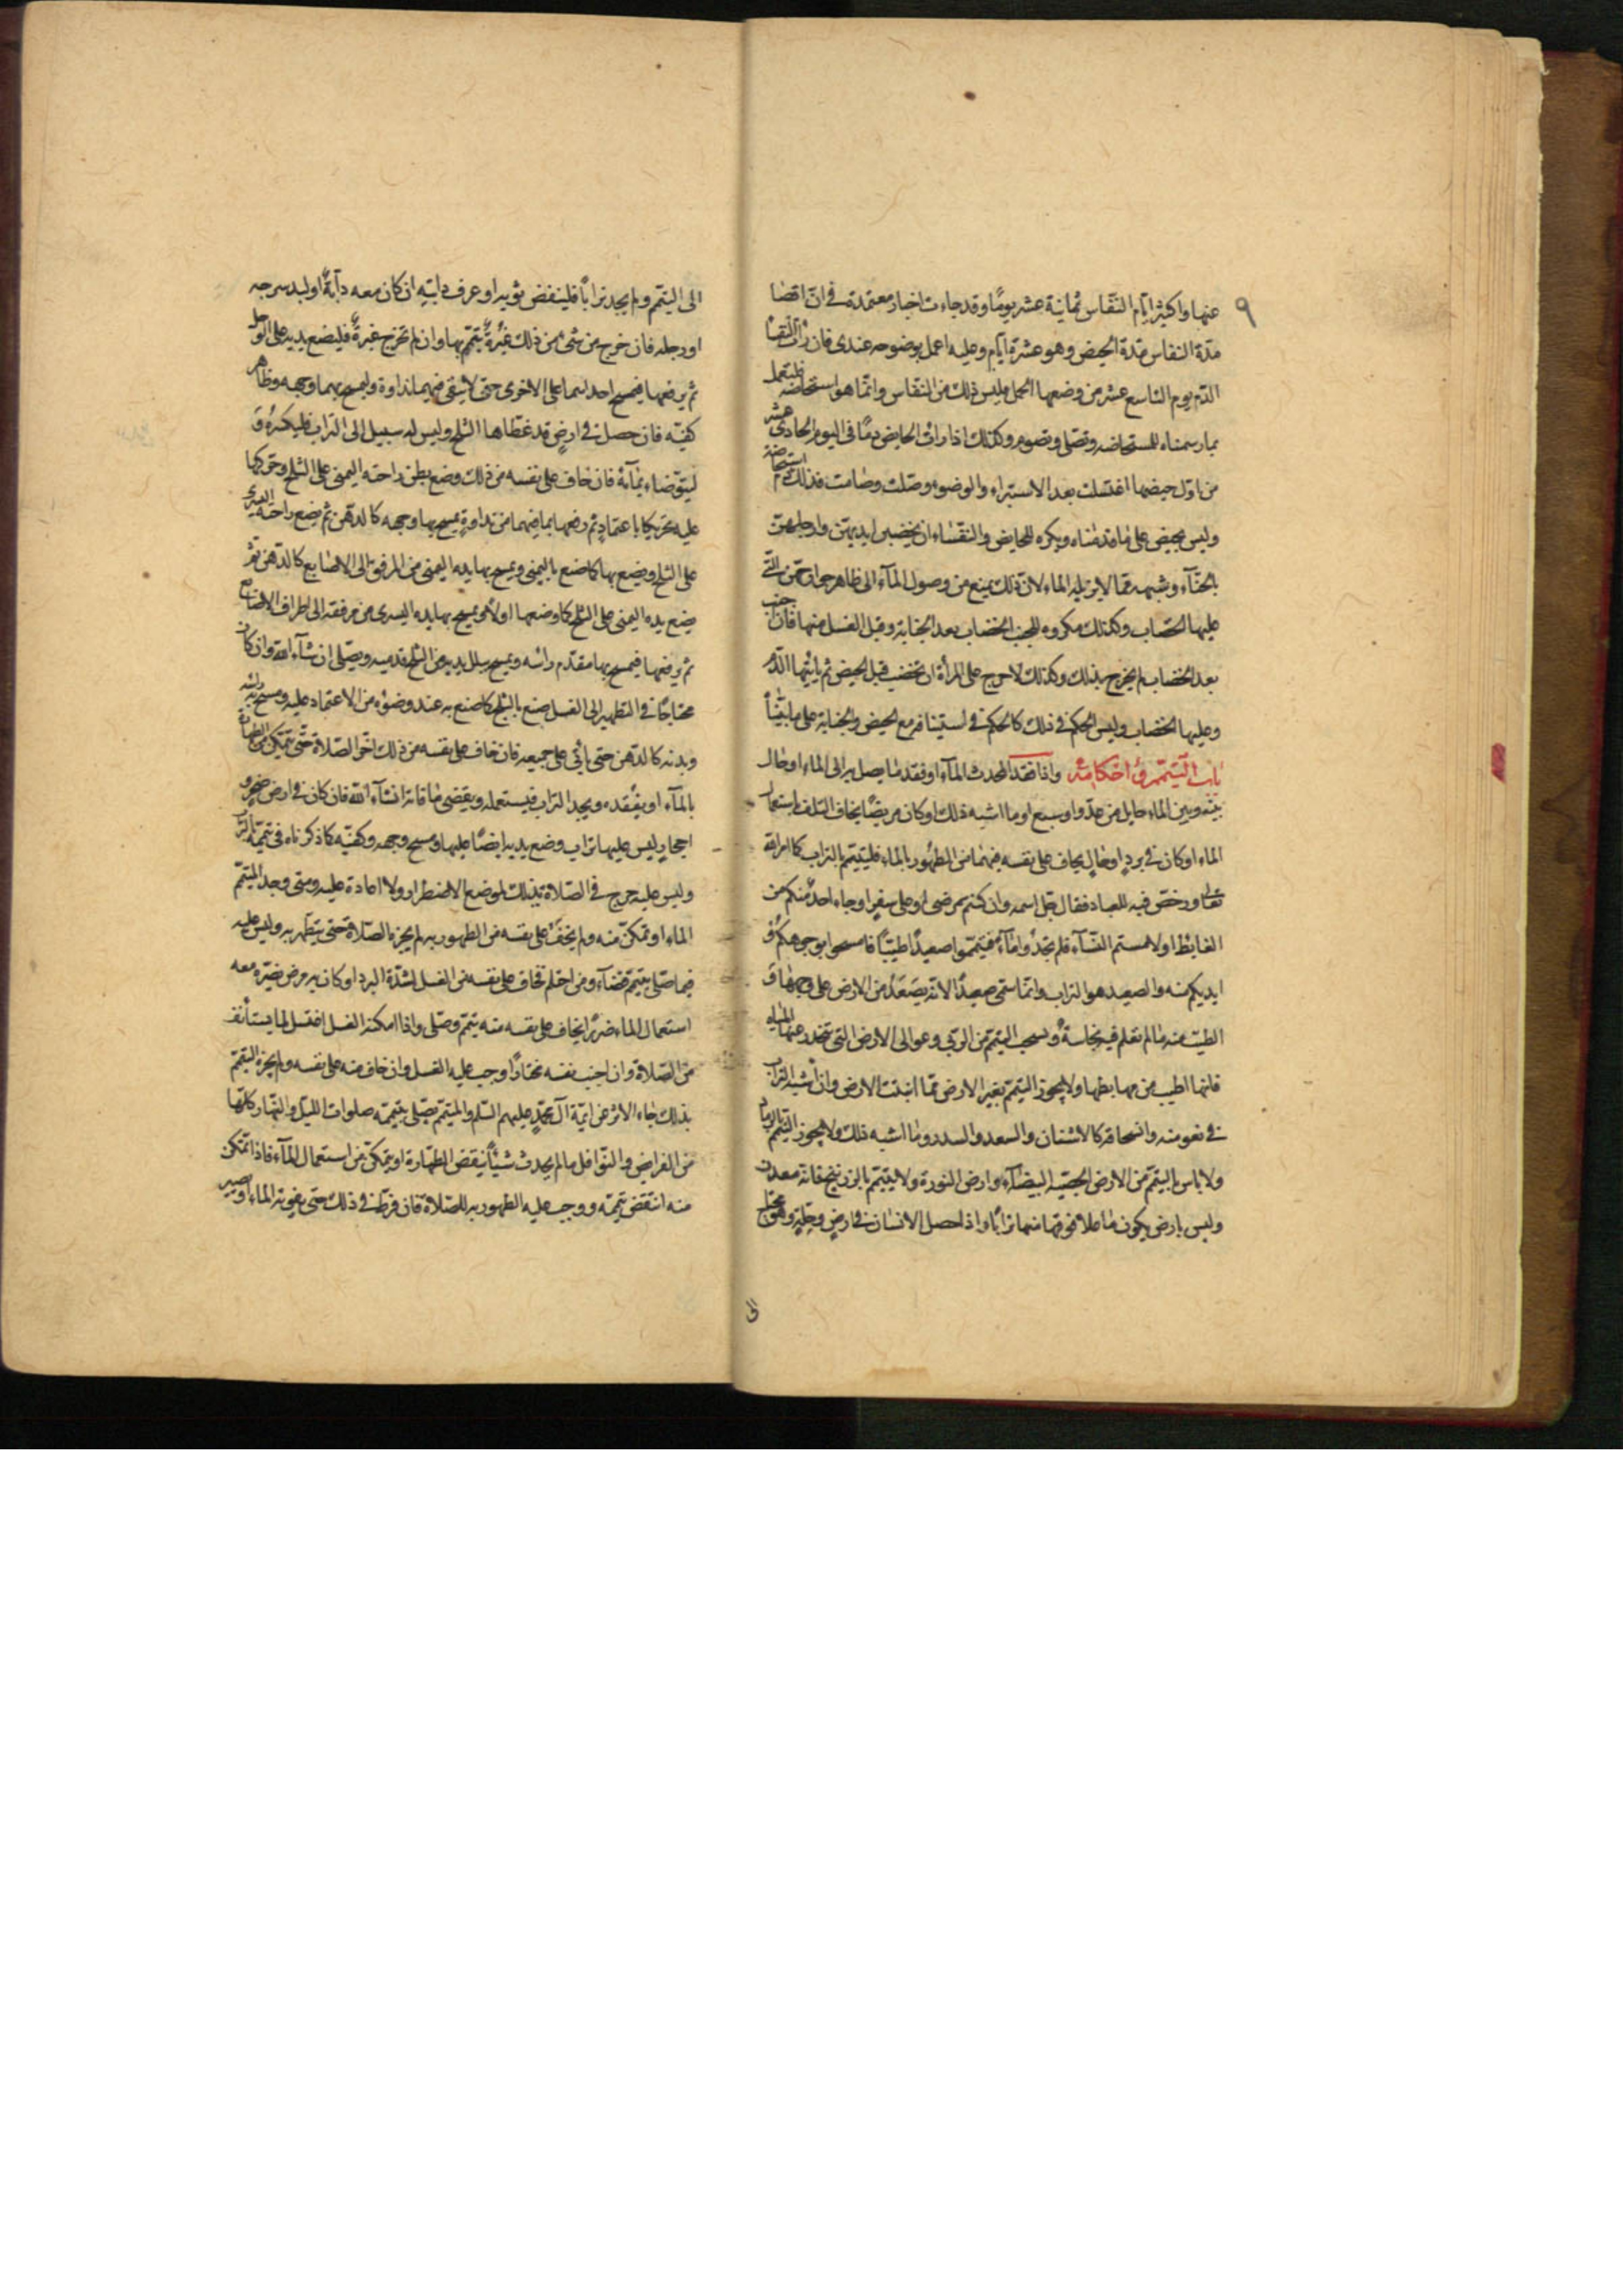 ٩
عنها واكثر ايام النفاس ثمانية عشر يوما وقد جاءت اخبار معتمدة في ان اقصا
مدة النفاس مدة الحيض وهو عشرة ايام وعليه اعمل بوضوحه عندي فان رأت النفسا
الدم يوم التاسع عشر من وضعها الحمل فليس ذلك من النفاس وانما هو استحاضة فلتعمل
بما رسمناه للمستحاضه وتصلي وتصوم وكذلك اذا رات الحايض دما في اليوم الحادي عشر
من اول حيضها اغتسلت بعد الاستبراء والوضوء وصلت وصامت فذلك دم استحاضة
وليس بحيض على ما قدمناه ويكره للحايض والنفساء ان يخضبن ايديهن وارجلهن
بالحناء وشبهه مما لا يزيله الماء لان ذلك يمنع من وصول الماء الى ظاهر جوارحهن التي
عليها الخضاب وكذلك مكروه للجنب الخضاب بعد الجنابة وقبل الغسل منها فان اجنب
بعد الخضاب لم يحرج بذلك وكذلك لا حرج على المرأة ان تخضب قبل الحيض ثم ياتيها الدم
وعليها الخضاب وليس الحكم في ذلك كالحكم في استينافه مع الحيض والجنابة على ما بيناه
باب التيمم واحكامه واذا فقد المحدث الماء او فقد ما يصل به الى الماء او حال
بينه وبين الماء حايل من عدو او سبع او ما اشبه ذلك او كان مريضا يخاف التلف باستعمال
الماء او كان في برد او حال يخاف على نفسه فيهما من الطهور بالماء فليتيمم بالتراب كما امر الله
تعالى ورخص فيه للعباد فقال جل اسمه وان كنتم مرضى او على سفر او جاء احد منكم من
الغايط او لامستم النساء فلم تجدوا ماء فتيمموا صعيدا طيبا فامسحوا بوجوهكم و
ايديكم منه والصعيد هو التراب وانما سمى صعيدا لانه يصعد من الارض على وجهها و
الطيب منه ما لم تعلم فيه نجاسة ويستحب التيمم من الربى وعوالي الارض التي تنحدر عنها المياه
فانها اطيب من مهابطها ولا يجوز التيمم بغير الارض مما انبتت الارض وان اشبه التراب
في نعومته وانسحاقه كالاشنان والسعد والسدر وما اشبه ذلك ولا يجوز التيمم بالرماد
ولا باس بالتيمم من الارض الجصية البيضاء وارض النورة ولا يتيمم بالزرنيخ فانه معدن
وليس بارض يكون ما علا فوقها منها ترابا واذا حصل الانسان في ارض وحلة وهو محتاج
الى
الى التيمم ولم يجد ترابا فلينفض ثوبه او عرف دابته ان كان معه دابة او لبد سرجه
او رحله فان خرج من شيء من ذلك غبرة تيمم بها وان لم تخرج غبرة فليضع يديه على الوحل
ثم يرفعهما فيمسح احداهما على الاخرى حتى لا يبقى فيهما نداوة وليمسح بهما وجهه وظاهر
كفيه فان حصل في ارض قد غطاها الثلج وليس له سبيل الى التراب فليكسره و
ليتوضاء بمائه فان خاف على نفسه من ذلك وضع بطن راحته اليمنى على الثلج وحركها
عليه تحريكا باعتماد ثم رفعها بما فيها من نداوة يمسح بها وجهه كالدهن ثم يضع راحته اليسرى
على الثلج ويضع بها كما صنع باليمنى ويمسح بها يده اليمنى من المرفق الى الاصابع كالدهن ثم
يضع يده اليمنى على الثلج كما وضعها اولا ويمسح بها يده اليسرى من مرفقه الى اطراف الاصابع
ثم يرفعها فيمسح بها مقدم راسه ويمسح ببلل يديه من الثلج قدميه ويصلي ان شاء الله وان كان
محتاجا في التطهير الى الغسل صنع بالثلج كما صنع به عند وضوئه من الاعتماد عليه ومسح به راسه
وبدنه كالدهن حتى ياتي على جميعه فان خاف على نفسه من ذلك اخر الصلاة حتى يتمكن من الطهارة
بالماء او يفقده ويجد التراب فيستعمله ويقضي ما فاته انشاء الله فان كان في ارض صخر و
احجار ليس عليها تراب وضع يديه ايضا عليها ومسح وجهه وكفيه كما ذكرناه في تيممه بالتراب
وليس عليه حرج في الصلاة بذلك لموضع الاضطرار ولا اعادة عليه ومتى وجد المتيمم
الماء او تمكن منه ولم يخف على نفسه من الطهور به لم يجزه الصلاة حتى يتطهر به وليس عليه
فيما صلى بتيمم قضاء ومن احتلم فخاف على نفسه من الغسل لشدة البرد او كان به مرض يضره معه
استعمال الماء ضررا يخاف على نفسه منه تيمم وصلى واذا امكنه الغسل اغتسل لما يستأنف
من الصلاة وان اجنب نفسه مختارا وجب عليه الغسل وان خاف منه على نفسه ولم يجزه التيمم
بذلك جاء الاثر عن ايمة آل محمد عليهم السلم والمتيمم يصلي بتيممه صلوات الليل والنهار كلها
من الفرايض والنوافل ما لم يحدث شيئا ينقض الطهارة او يتمكن من استعمال الماء فاذا تمكن
منه انتقض تيممه ووجب عليه الطهور به للصلاة فان فرط في ذلك حتى يفوته الماء او يصير